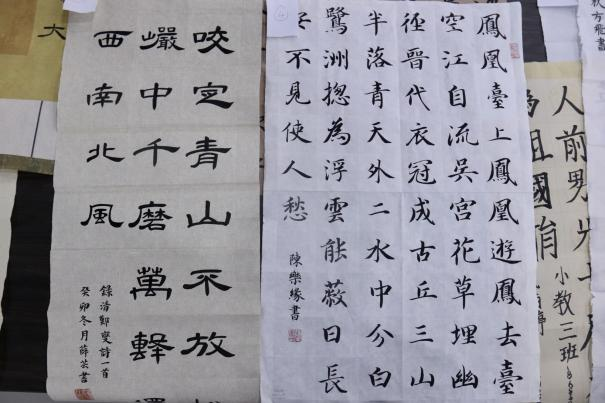 方飛書
人前男
為祖國
小教三班
鳳凰臺上鳳凰遊鳳去臺
空江自流吳宮花草埋幽
徑晉代衣冠成古丘三山
半落青天外二水中分白
鷺洲揔為浮雲能蔽日長
安不見使人愁
陳樂緣書
咬定青山不放
中千磨萬擊還
西南北風
錄清鄭燮詩一首
癸卯冬月薛芸書
大